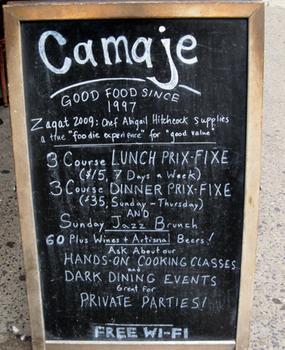 Camaje
GOOD FOOD SINCE
1997
Zagat 2009: Chef Abigail Hitchcock supplies
a true "foodie experience" for "good value"
3 Course LUNCH PRIX-FIXE
($15, 7 Days a Week)
3 Course DINNER PRIX-FIXE
($35, Sunday - Thursday)
AND
Sunday Jazz Brunch
60 Plus Wines + Artisnal Beers!
Ask About our
HANDS-ON COOKING CLASSES
and
DARK DINING EVENTS
Great for
PRIVATE PARTIES!
FREE WI-FI